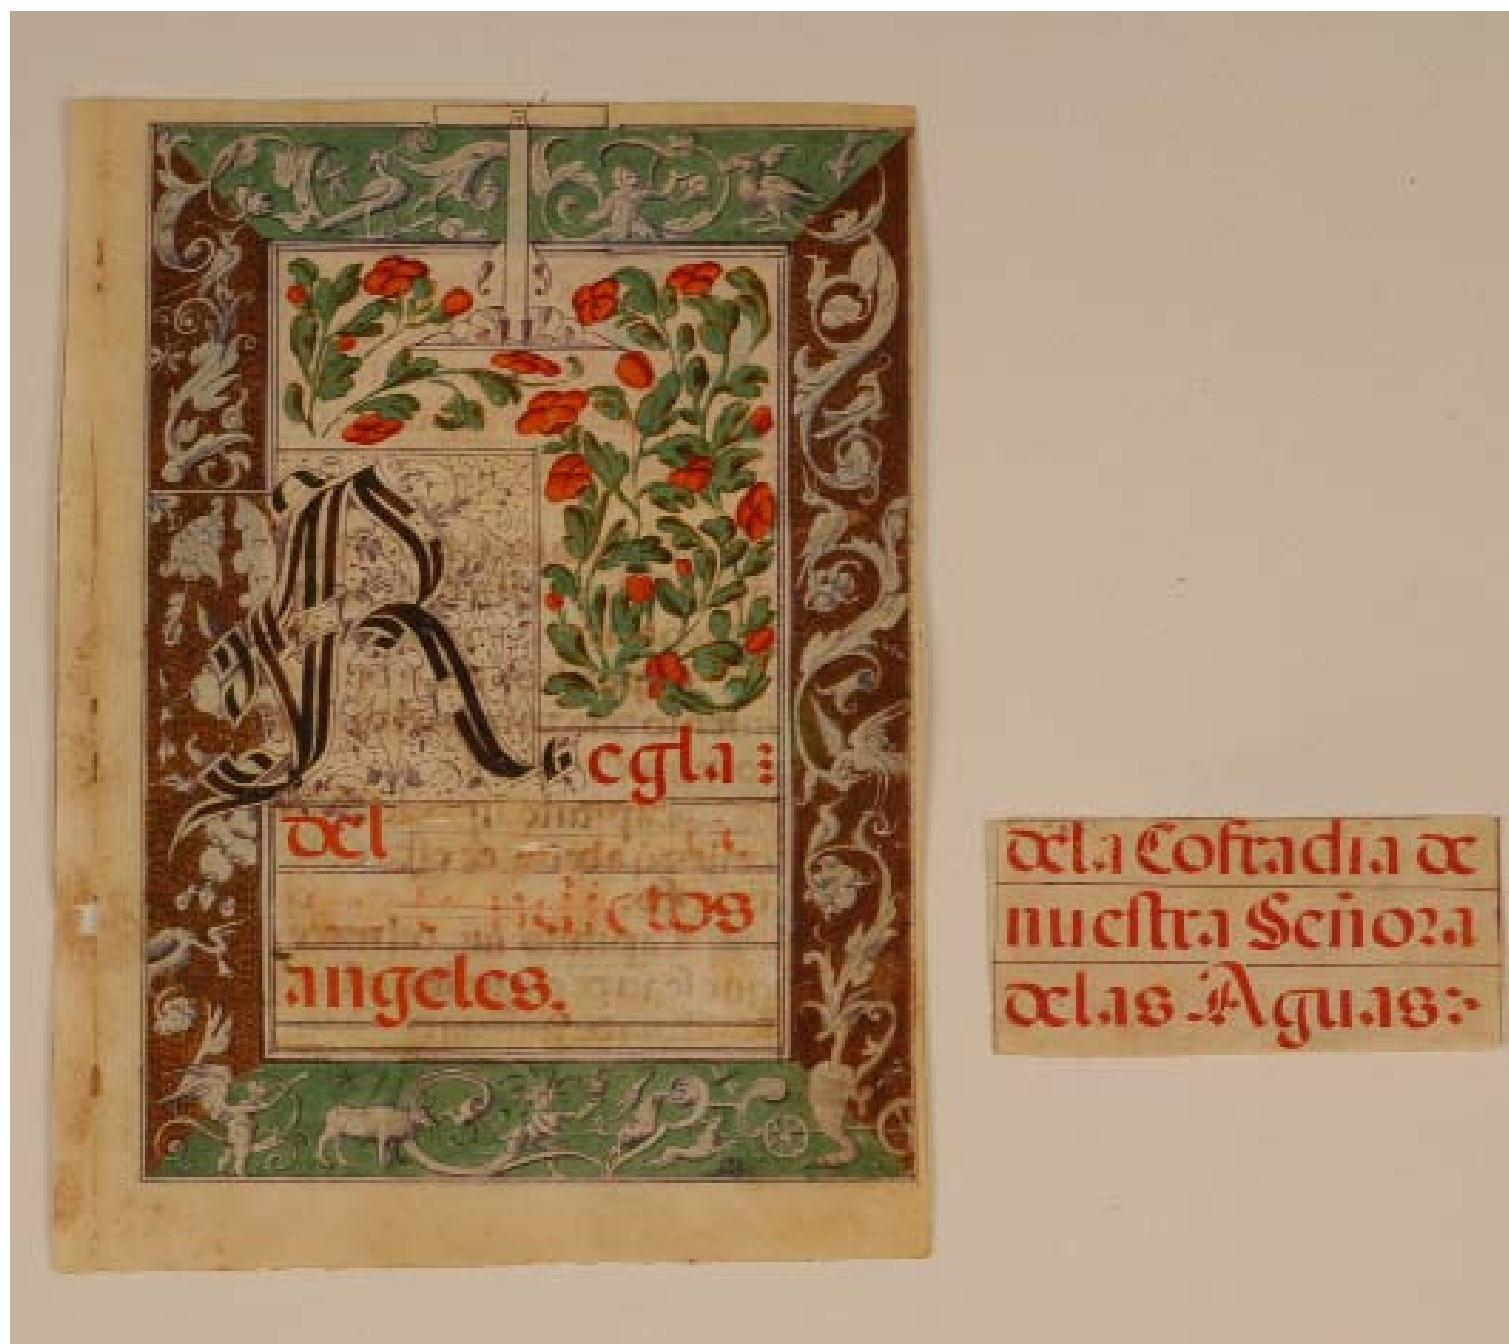 Regla :
del
los
angeles.
dela Cofradia de
nuestra Señora
delas Aguas :